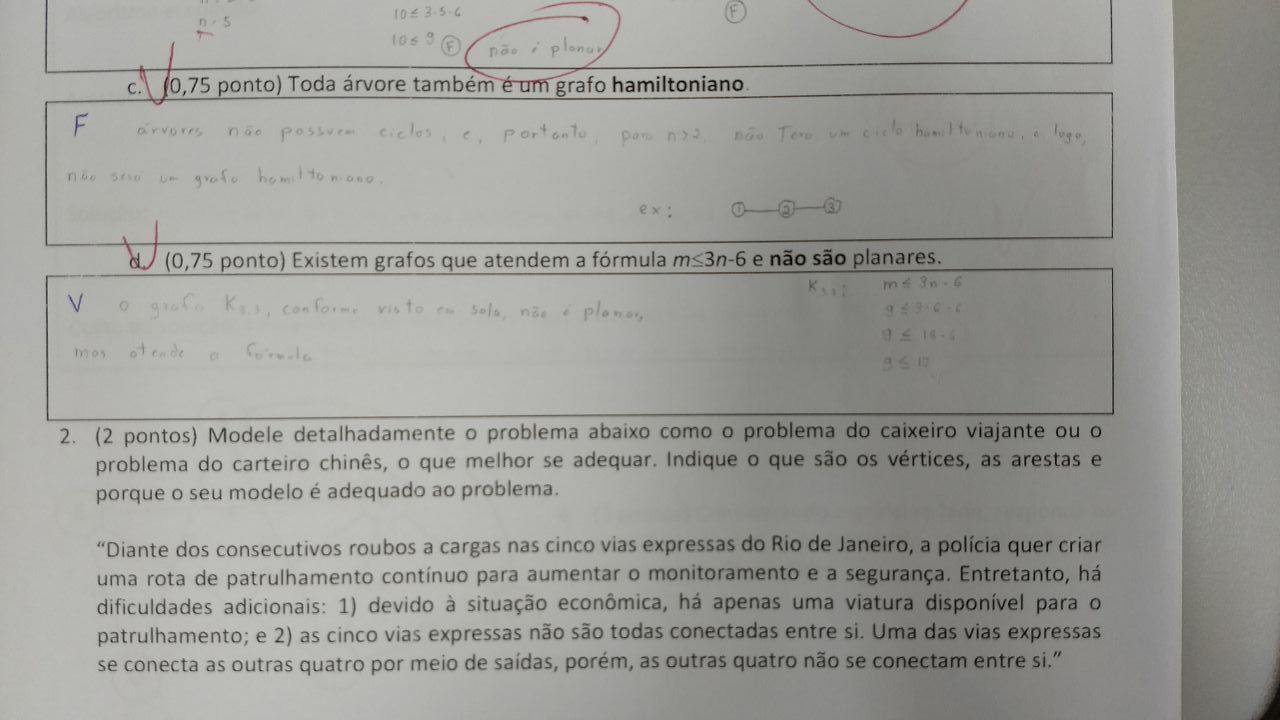 n = 5
10 ≤ 3·5-6
10 ≤ 9 F
não é planar
F
c. (0,75 ponto) Toda árvore também é um grafo hamiltoniano.
F árvores não possuem ciclos, e, portanto, para n>2, não Terá um ciclo hamiltoniano, e logo,
não será um grafo hamiltoniano.
ex: 1 2 3
d. (0,75 ponto) Existem grafos que atendem a fórmula m≤3n-6 e não são planares.
V o grafo K3,3, conforme visto em sala, não é planar,
mas atende a fórmula
K3,3: m ≤ 3n-6
9 ≤ 3·6-6
9 ≤ 18-6
9 ≤ 12
2. (2 pontos) Modele detalhadamente o problema abaixo como o problema do caixeiro viajante ou o
problema do carteiro chinês, o que melhor se adequar. Indique o que são os vértices, as arestas e
porque o seu modelo é adequado ao problema.
“Diante dos consecutivos roubos a cargas nas cinco vias expressas do Rio de Janeiro, a polícia quer criar
uma rota de patrulhamento contínuo para aumentar o monitoramento e a segurança. Entretanto, há
dificuldades adicionais: 1) devido à situação econômica, há apenas uma viatura disponível para o
patrulhamento; e 2) as cinco vias expressas não são todas conectadas entre si. Uma das vias expressas
se conecta as outras quatro por meio de saídas, porém, as outras quatro não se conectam entre si.”